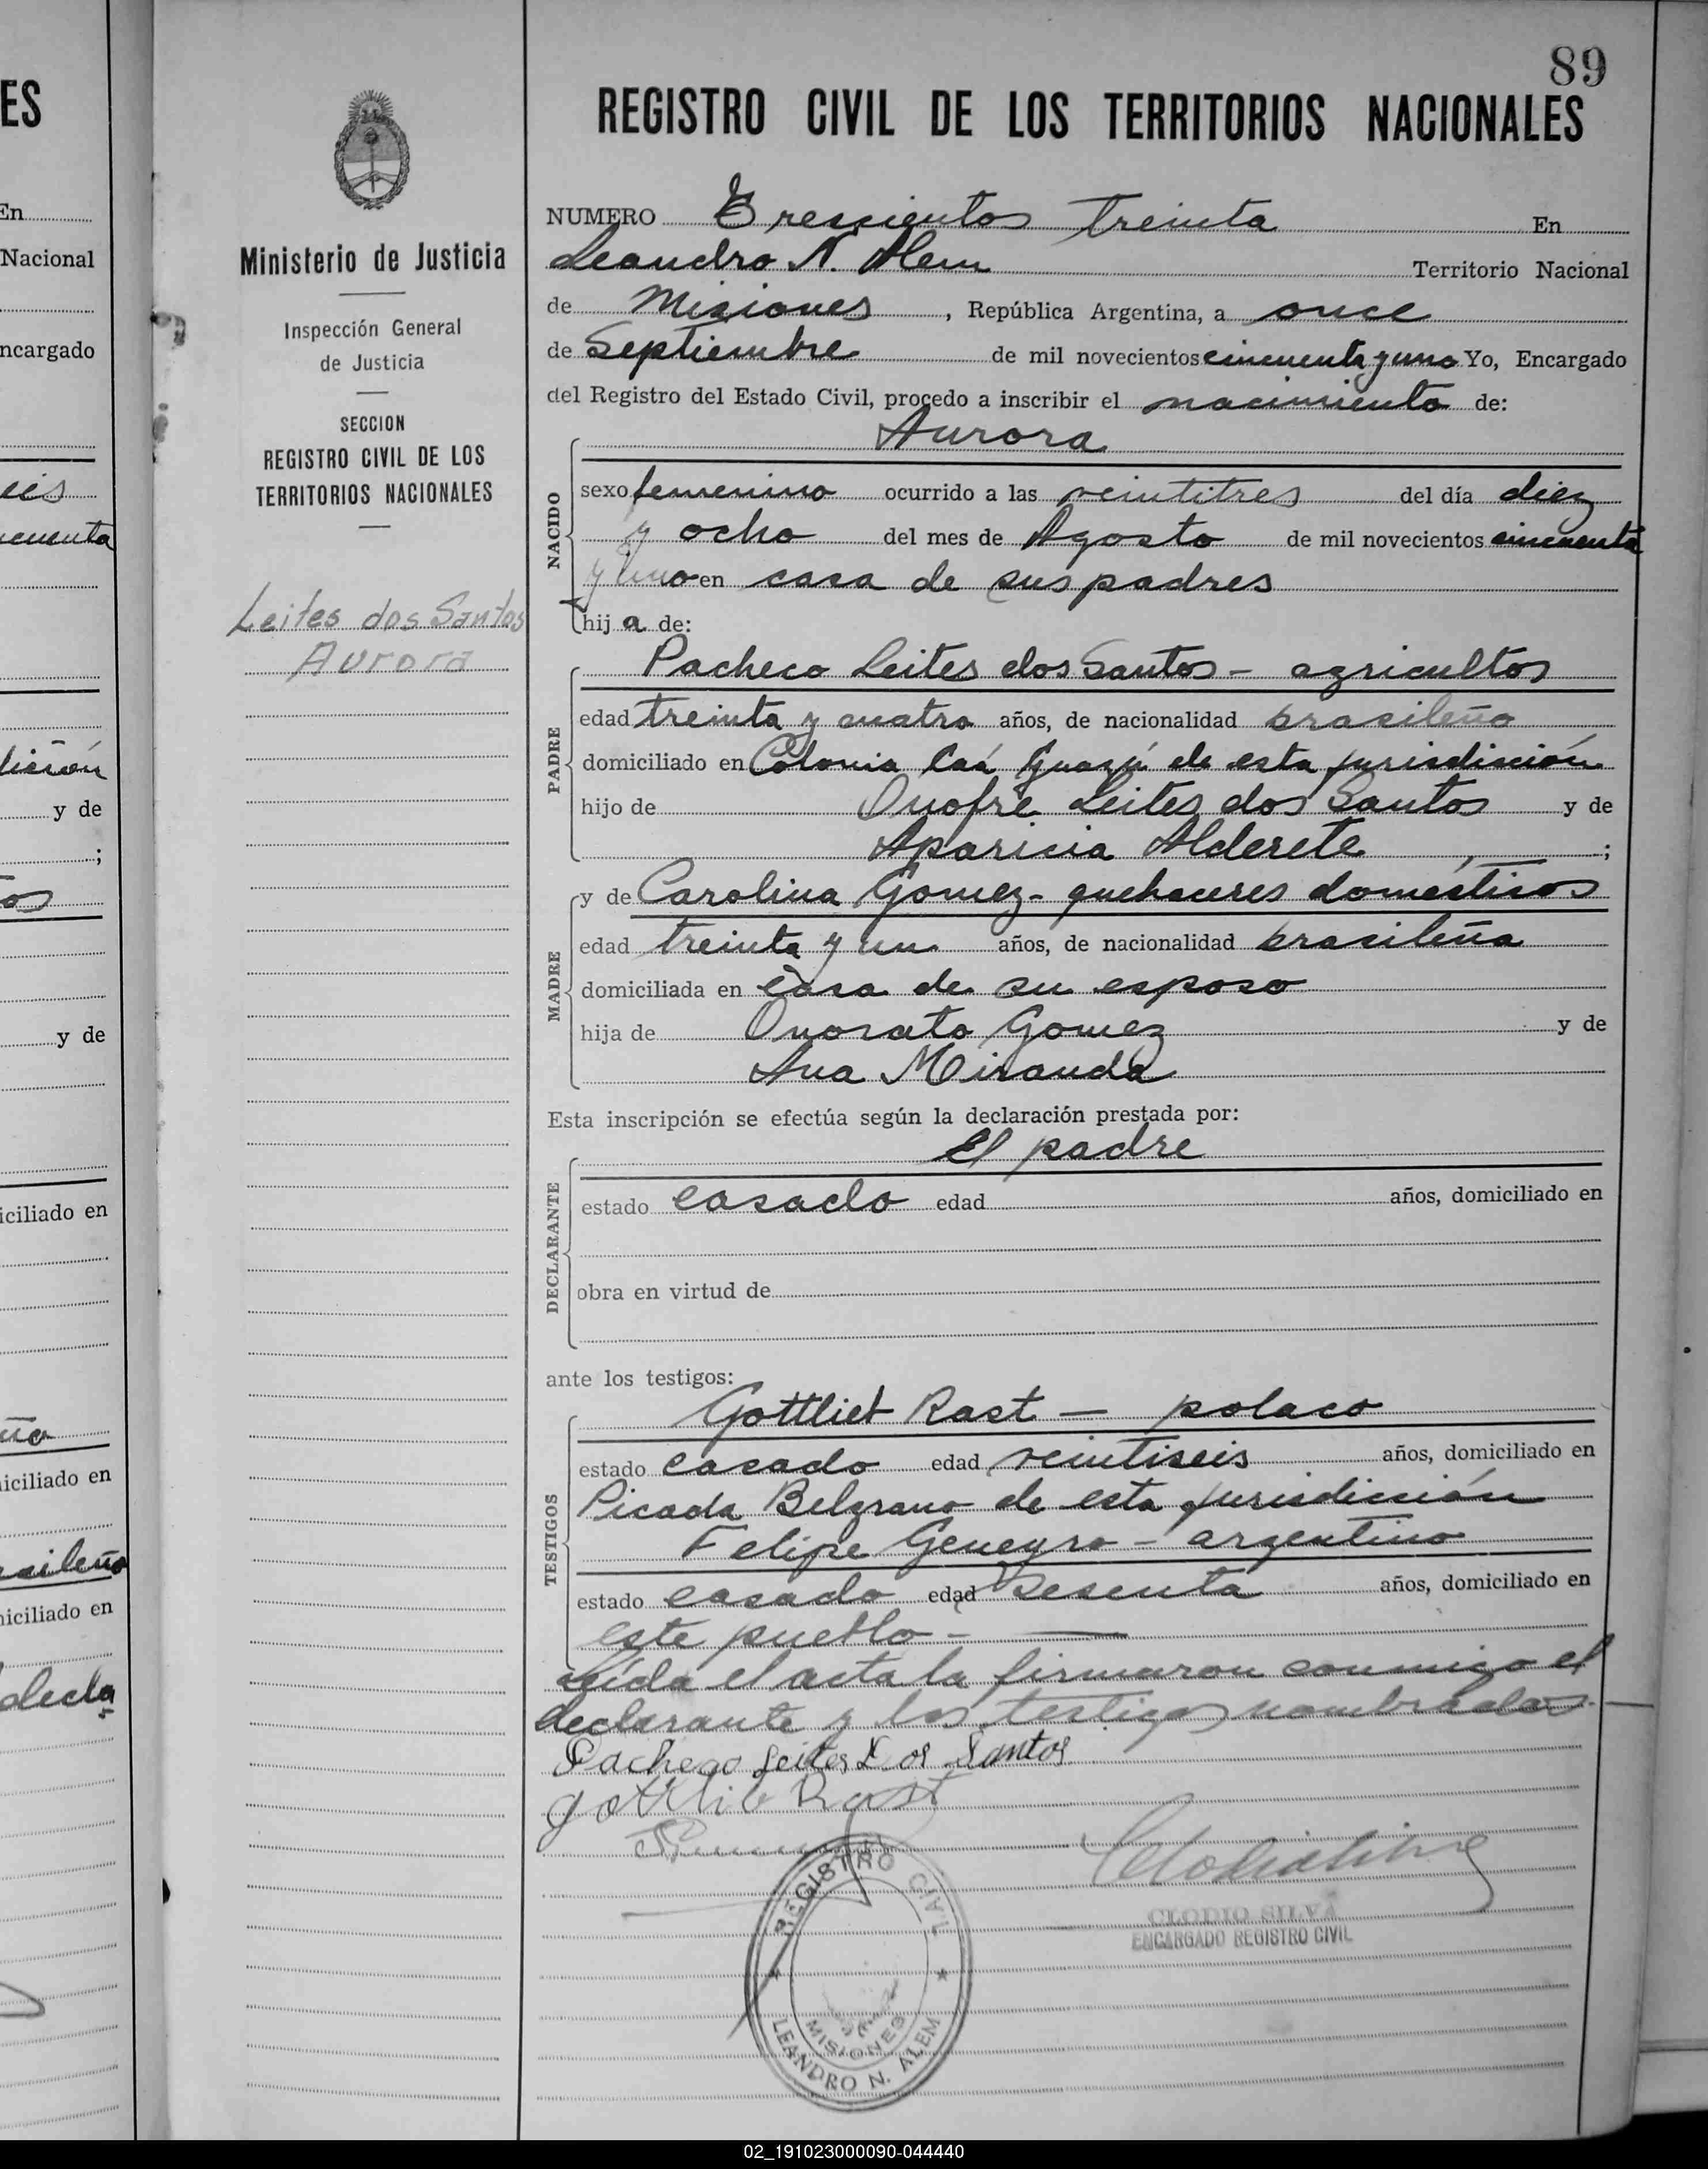 89
REGISTRO CIVIL DE LOS TERRITORIOS NACIONALES
Ministerio de Justicia
Inspección General
de Justicia
SECCION
REGISTRO CIVIL DE LOS
TERRITORIOS NACIONALES
Leites dos Santos
Aurora
NUMERO Trescientos treinta En
Leandro N. Alem Territorio Nacional
de Misiones, República Argentina, a once
de Septiembre de mil novecientos cincuenta y uno Yo, Encargado
del Registro del Estado Civil, procedo a inscribir el nacimiento de:
Aurora
NACIDO
sexo femenino ocurrido a las veintitres del día diez
y ocho del mes de Agosto de mil novecientos cincuenta
y uno en casa de sus padres
hij a de:
PADRE
Pacheco Leites dos Santos - agricultor
edad treinta y cuatro años, de nacionalidad brasileño
domiciliado en Colonia Caá Guazú de esta jurisdicción
hijo de Onofre Leites dos Santos y de
Aparicia Alderete ;
MADRE
y de Carolina Gomez - quehaceres domésticos
edad treinta y un años, de nacionalidad brasileña
domiciliada en casa de su esposo
hija de Onorato Gomez y de
Ana Miranda
Esta inscripción se efectúa según la declaración prestada por:
DECLARANTE
El padre
estado casado edad años, domiciliado en
obra en virtud de
ante los testigos:
TESTIGOS
Gottlieb Rast - polaco
estado casado edad veintiseis años, domiciliado en
Picada Belgrano de esta jurisdicción
Felipe Geneyro - argentino
estado casado edad sesenta años, domiciliado en
este pueblo -
Leída el acta la firmaron conmigo el
declarante y los testigos nombrados.
Pacheco Leites Dos Santos
Gottlib Rast
CLODIO SILVA
ENCARGADO REGISTRO CIVIL
REGISTRO CIVIL
MISIONES
LEANDRO N. ALEM
ES
En
Nacional
ncargado
y de
;
y de
iciliado en
iciliado en
iciliado en
02_191023000090-044440